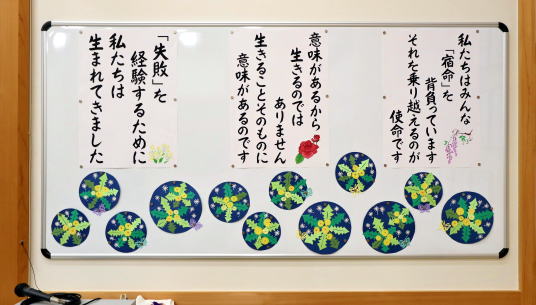 私たちはみんな
「宿命」を
背負っています
それを乗り越えるのが
使命です
意味があるから
生きるのでは
ありません
生きることそのものに
意味があるのです
「失敗」を
経験するために
私たちは
生まれてきました